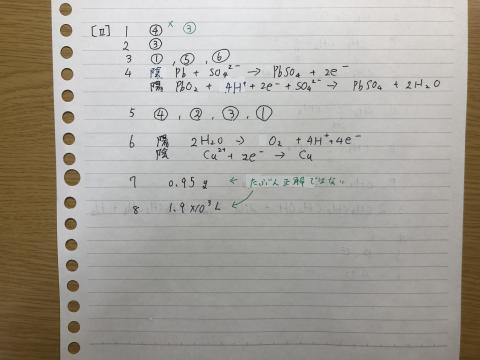 [Ⅱ] 1 ④ × ③
2 ③
3 ①, ⑤, ⑥
4 陰 Pb + SO₄²⁻ → PbSO₄ + 2e⁻
陽 PbO₂ + 4H⁺ + 2e⁻ + SO₄²⁻ → PbSO₄ + 2H₂O
5 ④, ②, ③, ①
6 陽 2H₂O → O₂ + 4H⁺ + 4e⁻
陰 Cu²⁺ + 2e⁻ → Cu
7 0.95 g ← たぶん正解ではない
8 1.9 × 10³ L